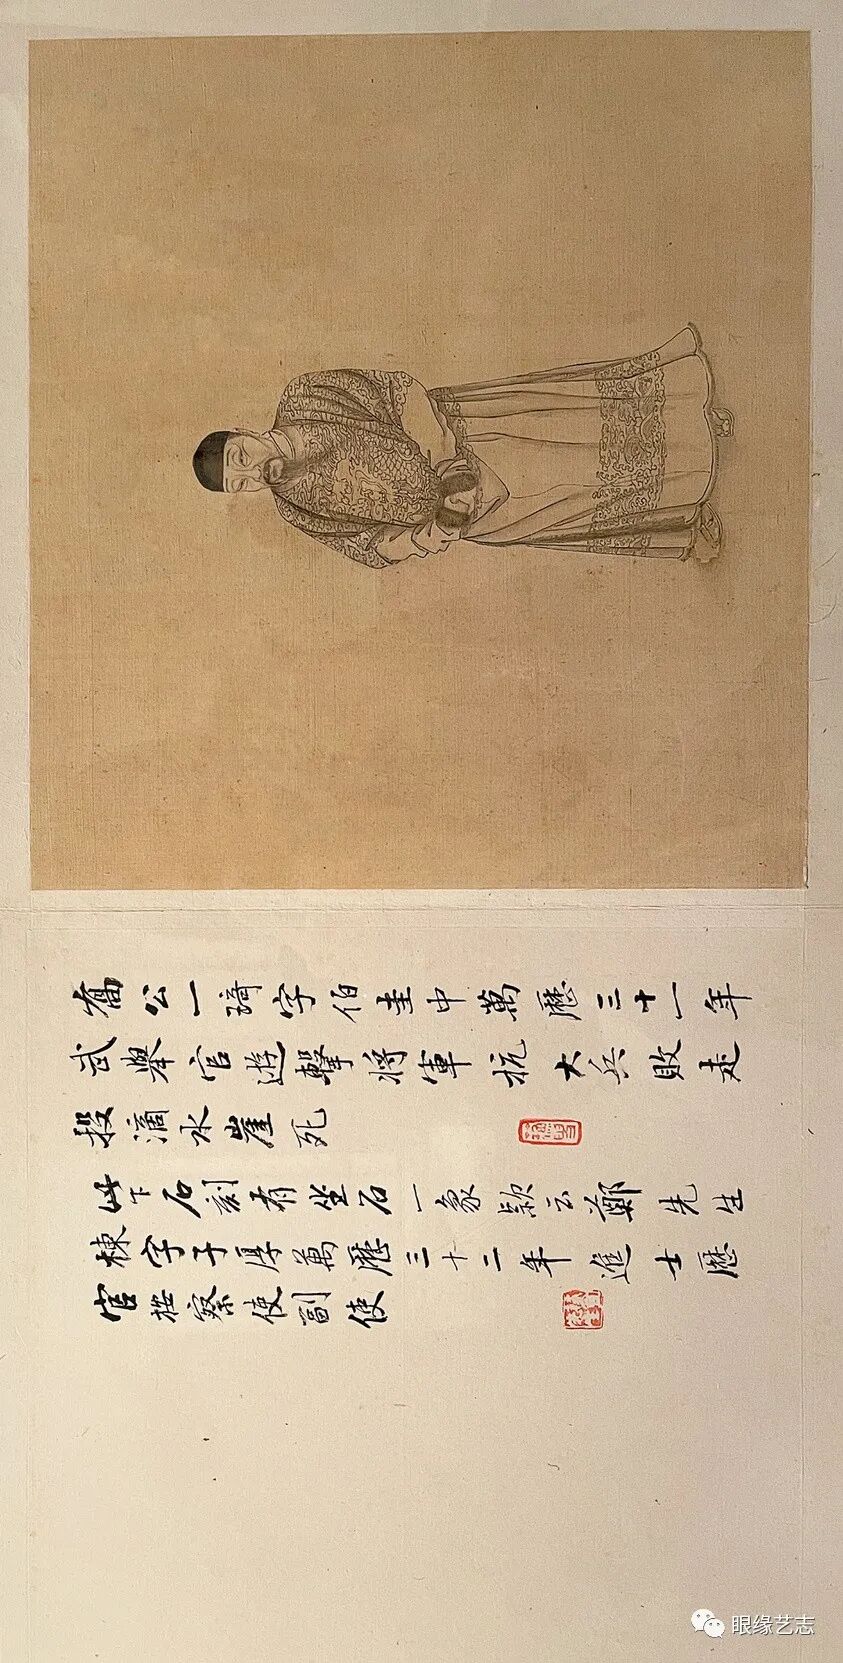 喬公一琦字伯圭中萬歷三十一年
武舉官遊擊將軍抗大兵敗走
投滴水崖死
此下石刻有坐石一象款云鄭先生
棟字子厚萬歷三十二年進士歷
官按察使副使
眼缘艺志